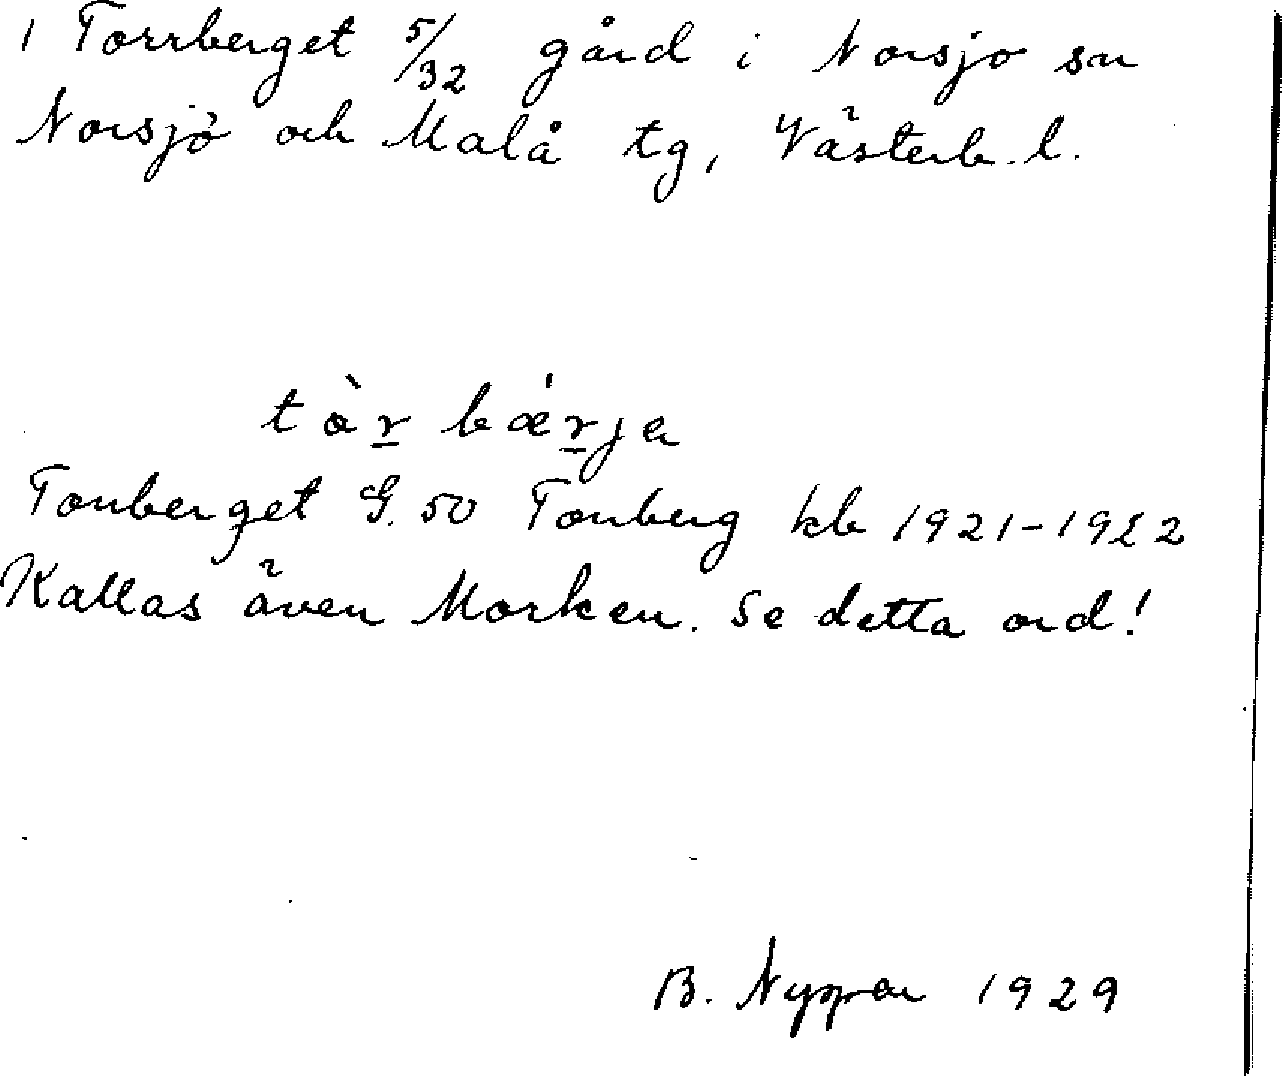 1 Torrberget 5/32 gård i Norsjö sn
Norsjö och Malå tg, Västerb. l.
tòr bǽrja
Torrberget G. 50 Torrberg kb 1921-1922
Kallas även Morken. Se detta ord!
B. 1929